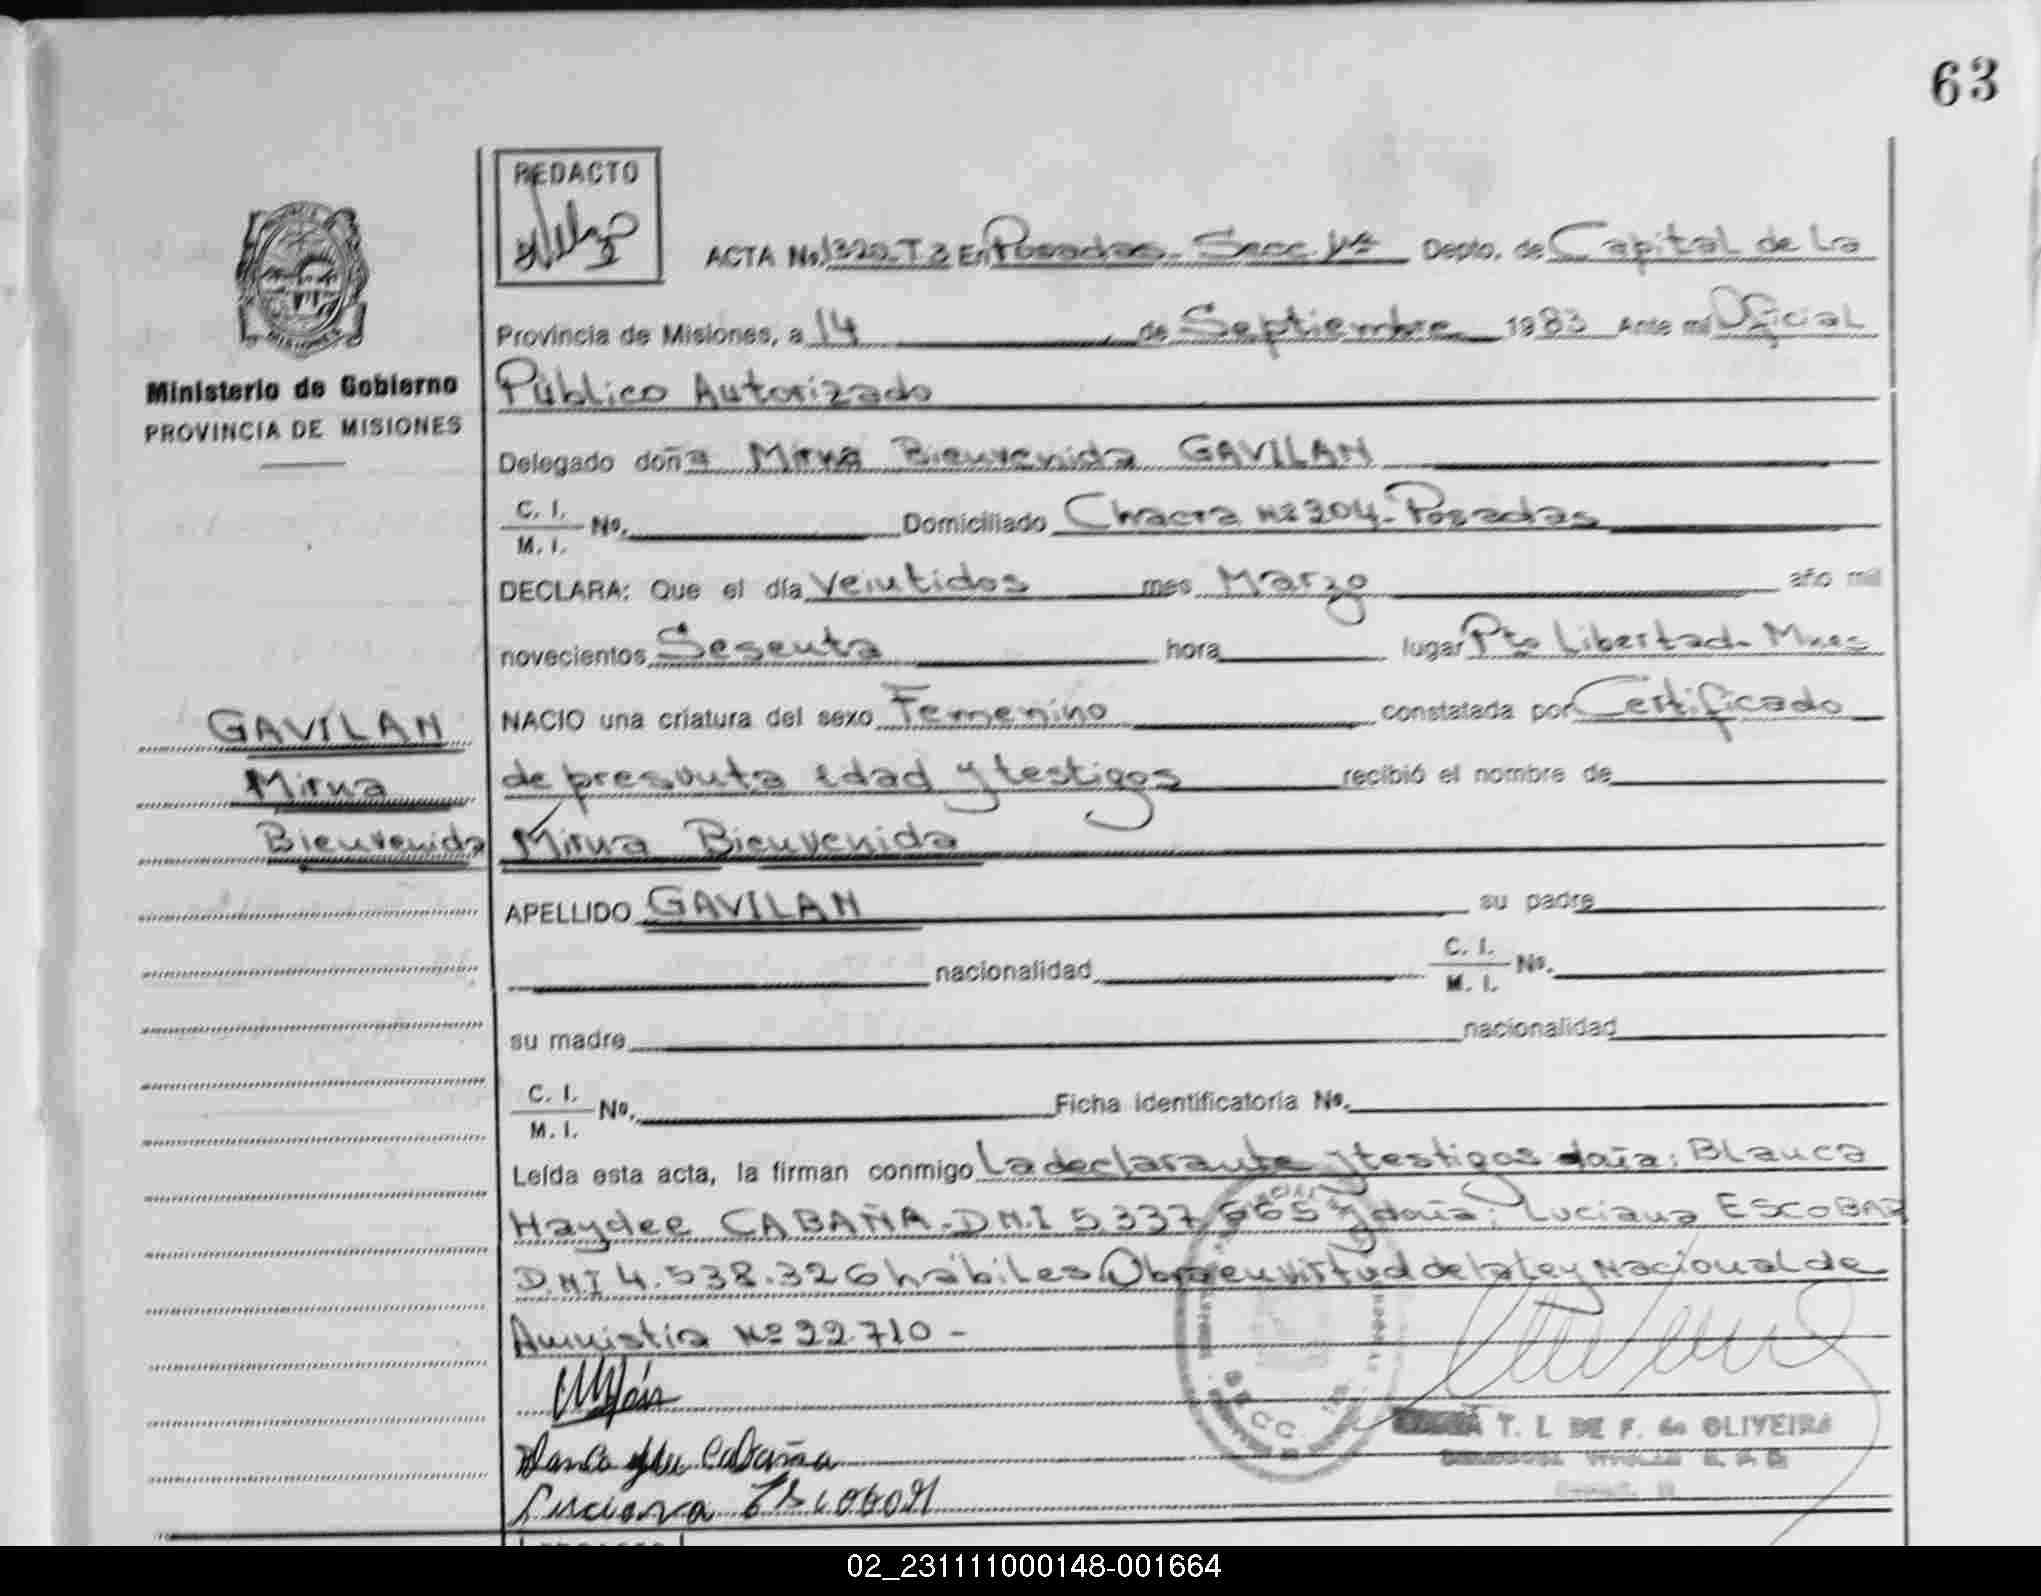 63
REDACTO
ACTA No. 1320. T 3 En Posadas. Secc. 1ra Depto. de Capital de la
Provincia de Misiones, a 14 de Septiembre 1983 Ante mi Oficial
Público Autorizado
Ministerio de Gobierno
PROVINCIA DE MISIONES
Delegado doña Mirna Bienvenida GAVILAN
C. I.
M. I. No. Domiciliado Chacra Nº 204. Posadas
DECLARA: Que el día Veintidos mes Marzo año mil
novecientos Sesenta hora lugar Pto Libertad. Mnes
NACIO una criatura del sexo Femenino constatada por Certificado
de presunta edad y testigos recibió el nombre de
Mirna Bienvenida
GAVILAN
Mirna
Bienvenida
APELLIDO GAVILAN su padre
nacionalidad C. I.
M. I. No.
su madre nacionalidad
C. I.
M. I. No. Ficha identificatoria No.
Leída esta acta, la firman conmigo La declarante y testigos doña: Blanca
Haydee CABAÑA. D.N.I 5.337.665 y doña: Luciana ESCOBAR
D.N.I 4.538.326 hábiles Obra en virtud de la Ley Nacional de
Amnistia Nº 22.710 -
Cabaña
Luciana Escobar
SECC.
T. L. DE F. de OLIVEIRA
02_231111000148-001664